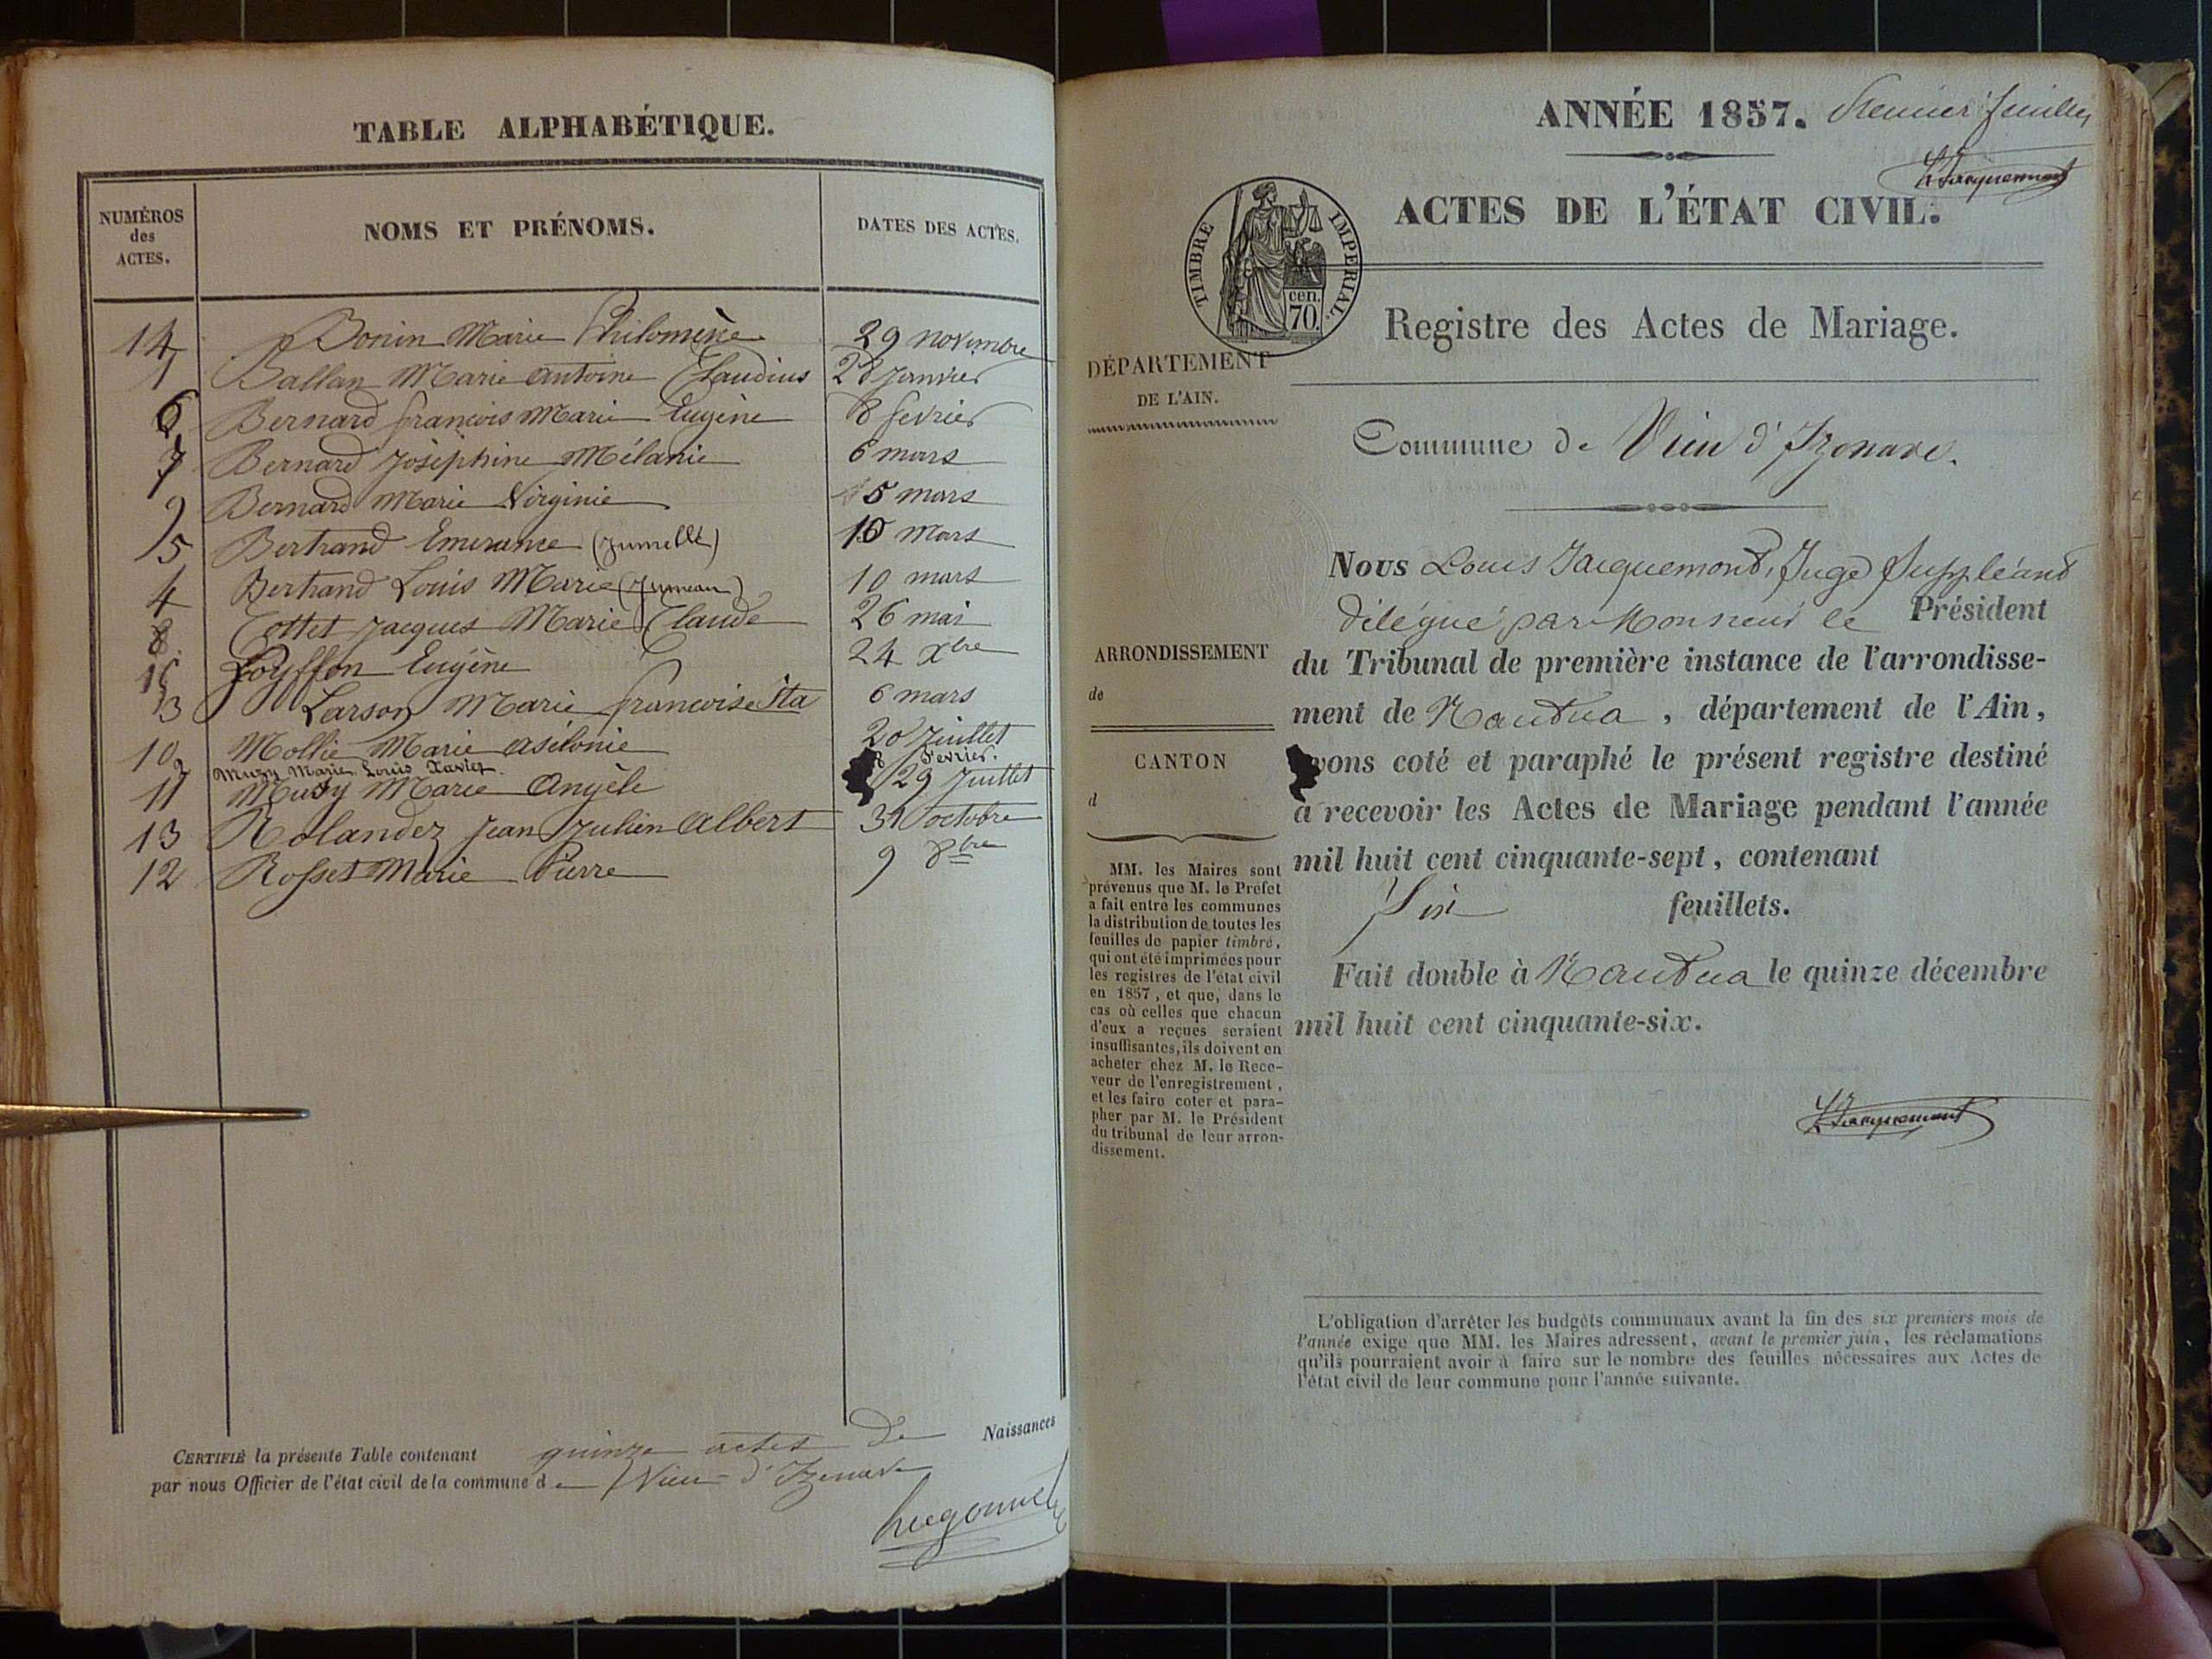 TABLE ALPHABÉTIQUE.
NUMÉROS des ACTES.
NOMS ET PRÉNOMS.
DATES DES ACTES.
14 Bonin Marie Philomène 29 novembre
1 Ballan Marie Antoine Claudius 28 janvier
6 Bernard françois Marie Eugène 8 fevrier
7 Bernard Joséphine Mélanie 6 mars
9 Bernard Marie Virginie 15 mars
5 Bertrand Emerance (Jumelle) 10 mars
4 Bertrand Louis Marie (Jumeau) 10 mars
8 Cottet Jacques Marie Claude 26 mai
15 Eugène 24 Xbre
3 Larson Marie françoise 6 mars
10 Mollie Marie 20 juillet
2 Muzy Marie Louis Xavier. 8 fevrier.
11 Muzy Marie Angèle 29 Juillet
13 Rolandez Jean Julien Albert 31 octobre
12 Rosset Marie Pierre 9 8bre
CERTIFIÉ la présente Table contenant quinze actes de Naissances
par nous Officier de l'état civil de la commune de Vieu-d'Izenave
hugonnet
ANNÉE 1857. Premier feuillet
LJacquemont
ACTES DE L'ÉTAT CIVIL.
TIMBRE IMPÉRIAL.
cen.
70.
Registre des Actes de Mariage.
DÉPARTEMENT
DE L'AIN.
Commune de Vieu d'Izenave.
Nous Louis Jacquemont, Juge Suppléant
délégué par Monsieur le Président
du Tribunal de première instance de l'arrondisse-
ment de Nantua, département de l'Ain,
avons coté et paraphé le présent registre destiné
à recevoir les Actes de Mariage pendant l'année
mil huit cent cinquante-sept, contenant
Six feuillets.
Fait double à Nantua le quinze décembre
mil huit cent cinquante-six.
LJacquemont
ARRONDISSEMENT
de
CANTON
d
MM. les Maires sont
prévenus que M. le Préfet
a fait entre les communes
la distribution de toutes les
feuilles de papier timbré,
qui ont été imprimées pour
les registres de l'état civil
en 1857, et que, dans le
cas où celles que chacun
d'eux a reçues seraient
insuffisantes, ils doivent en
acheter chez M. le Rece-
veur de l'enregistrement,
et les faire coter et para-
pher par M. le Président
du tribunal de leur arron-
dissement.
L'obligation d'arrêter les budgets communaux avant la fin des six premiers mois de
l'année exige que MM. les Maires adressent, avant le premier juin, les réclamations
qu'ils pourraient avoir à faire sur le nombre des feuilles nécessaires aux Actes de
l'état civil de leur commune pour l'année suivante.